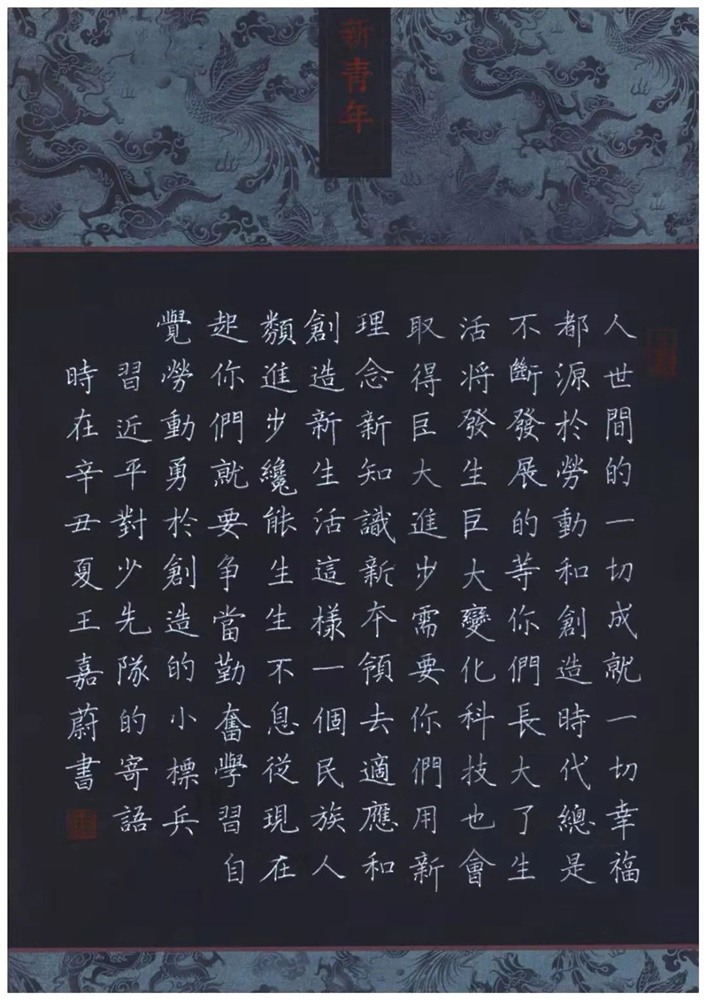 新青年
人世間的一切成就一切幸福
都源於勞動和創造時代總是
不斷發展的等你們長大了生
活將發生巨大變化科技也會
取得巨大進步需要你們用新
理念新知識新夲領去適應和
創造新生活這樣一個民族人
類進步纔能生生不息從現在
起你們就要争當勤奮學習自
覺勞動勇於創造的小標兵
習近平對少先隊的寄語
時在辛丑夏王嘉蔚書